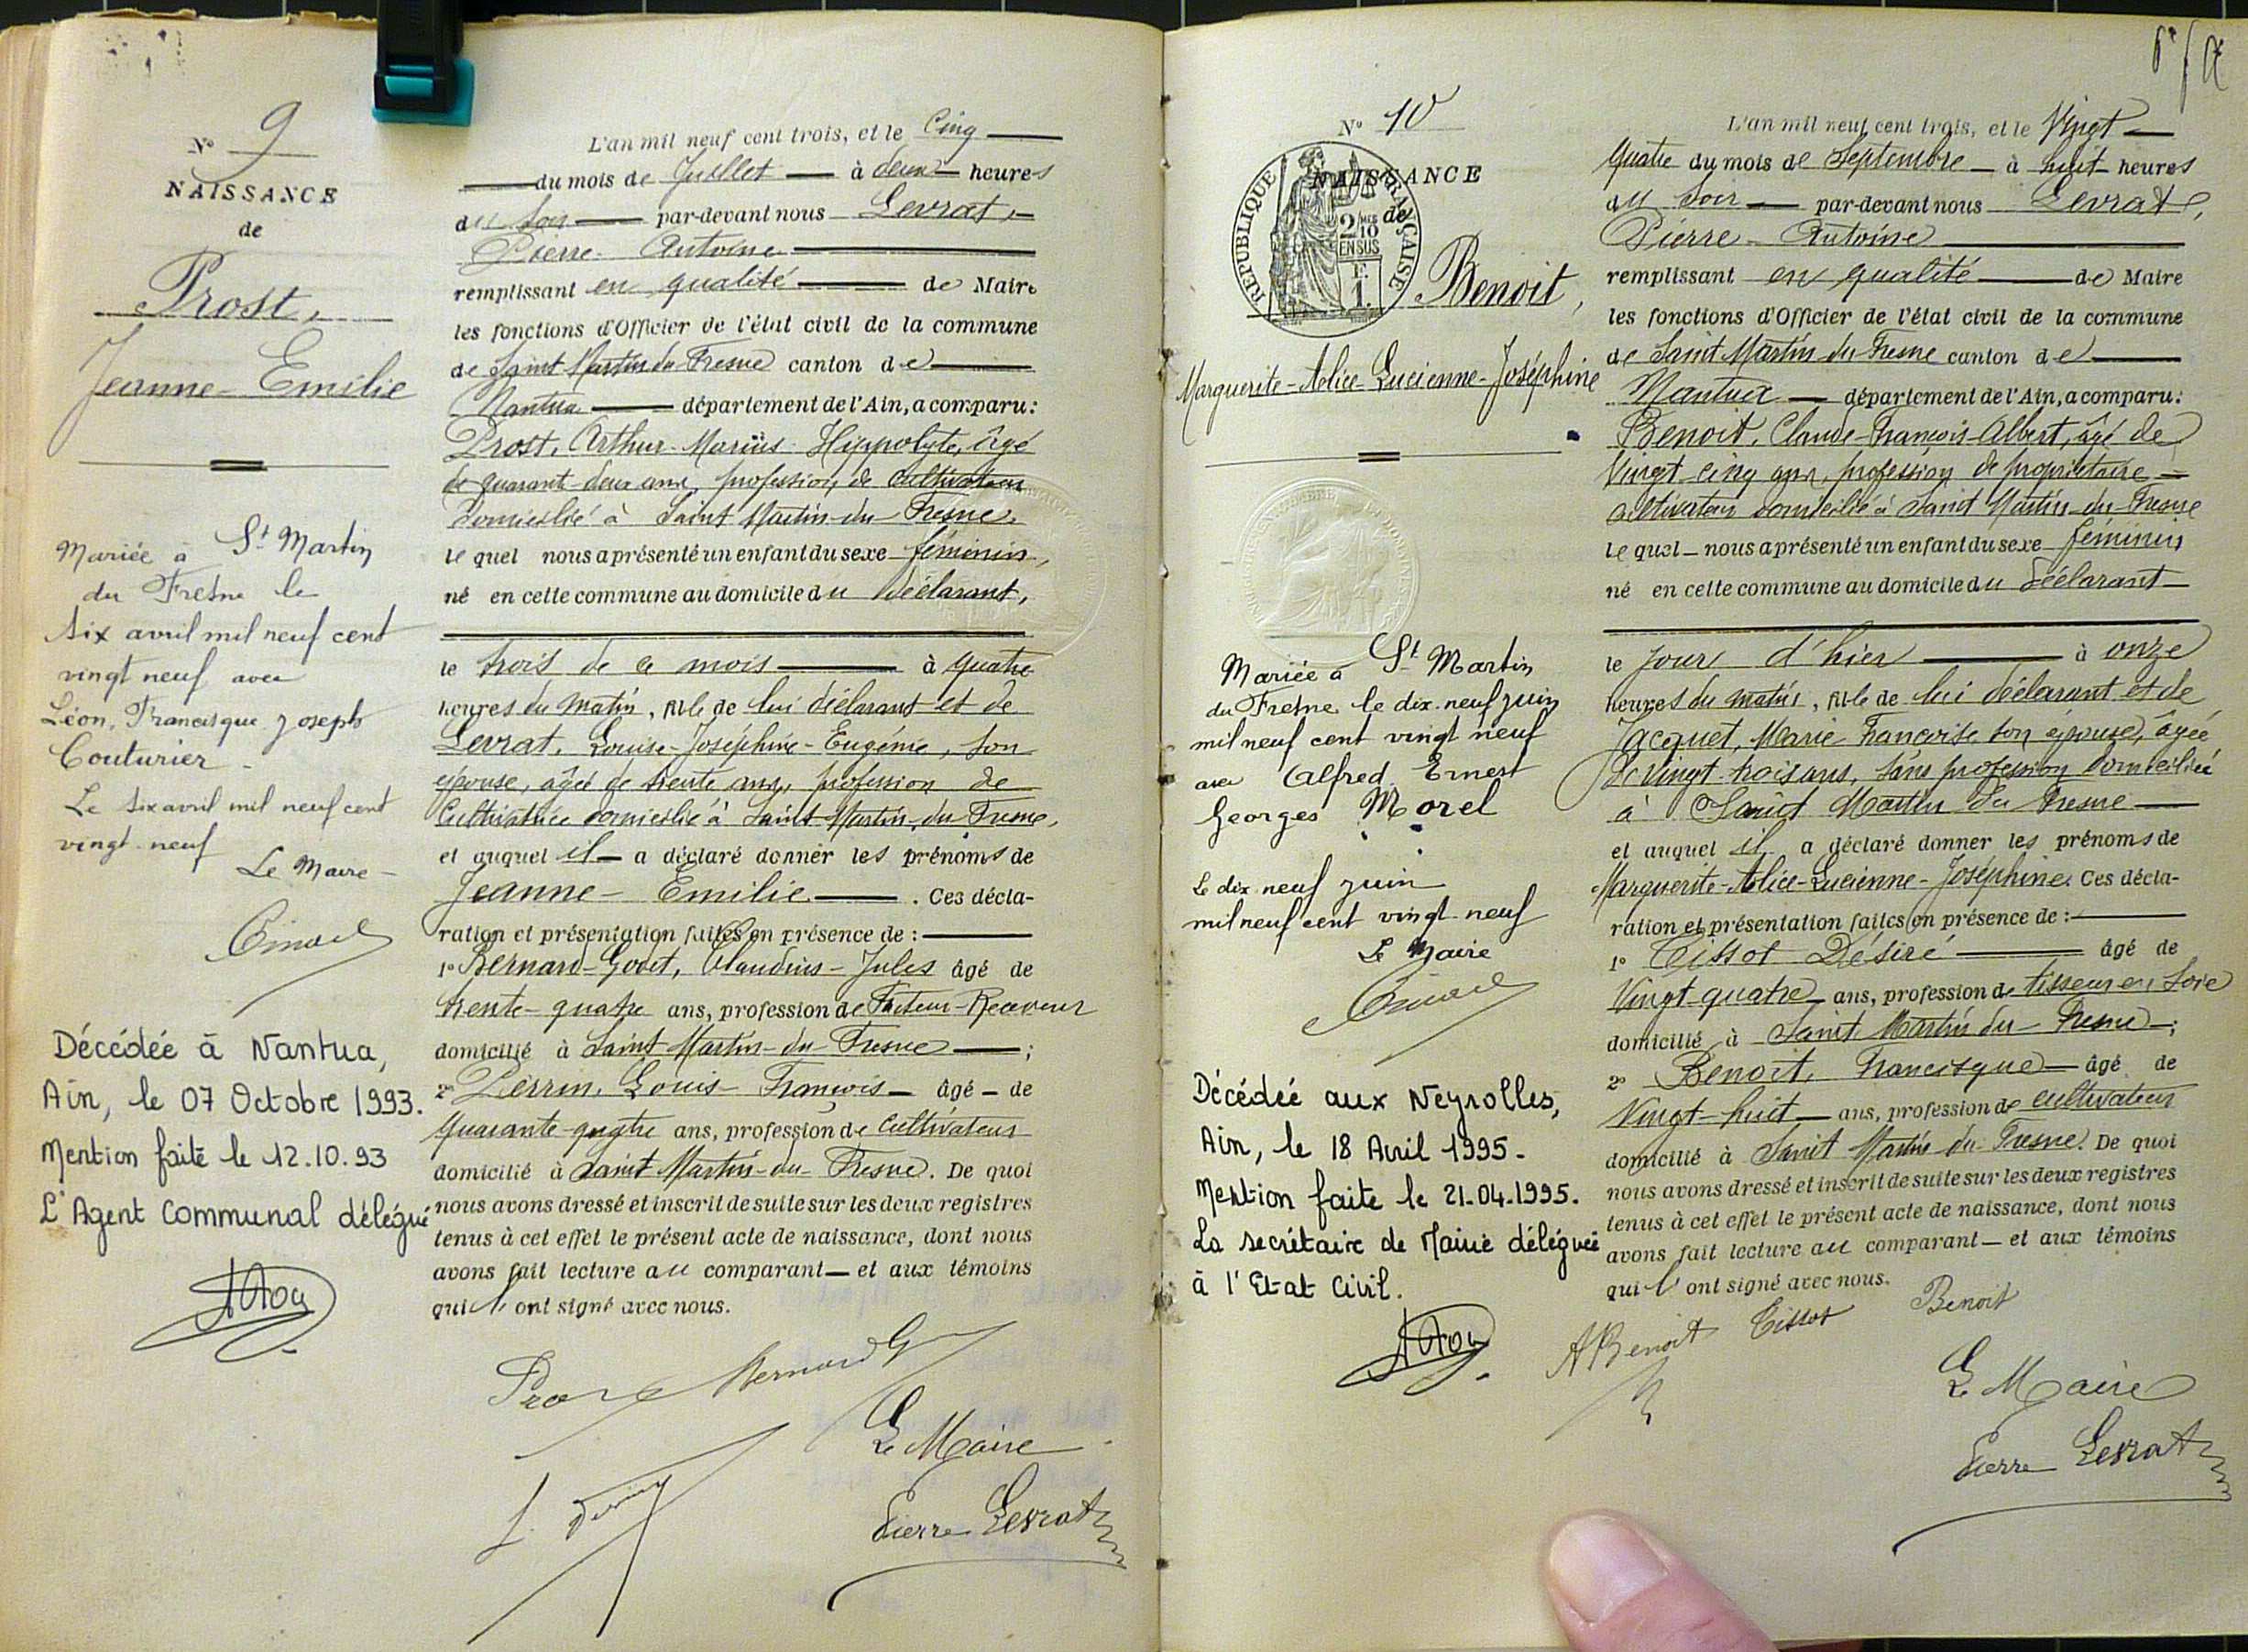 Nº 9
NAISSANCE
de
Prost,
Jeanne-Emilie
Mariée à St Martin
du Fresne le
six avril mil neuf cent
vingt neuf avec
Léon, Francisque Joseph
Couturier -
Le six avril mil neuf cent
vingt-neuf
Le Maire -
Décédée à Nantua,
Ain, le 07 Octobre 1993.
Mention faite le 12.10.93
L'Agent Communal délégué
L'an mil neuf cent trois, et le Cinq
du mois de Juillet à deux heures
du soir par-devant nous Levrat,
Pierre-Antoine
remplissant en qualité de Maire
les fonctions d'Officier de l'état civil de la commune
de Saint Martin du Fresne canton de
Nantua département de l'Ain, a comparu:
Prost, Arthur-Marius-Hippolyte, âgé
de quarante-deux ans, profession de cultivateur
domicilié à Saint Martin-du-Fresne,
lequel nous a présenté un enfant du sexe féminin,
né en cette commune au domicile du déclarant,
le trois de ce mois à quatre
heures du matin, fille de lui déclarant et de
Levrat, Louise-Joséphine-Eugénie, son
épouse, âgée de trente ans, profession de
Cultivatrice domiciliée à Saint-Martin-du-Fresne,
et auquel il a déclaré donner les prénoms de
Jeanne-Emilie. Ces décla-
ration et présentation faites en présence de :
1º Bernard-Godet, Claudius-Jules âgé de
trente-quatre ans, profession de Facteur-Receveur
domicilié à Saint Martin-du-Fresne ;
2º Perrin, Louis-François âgé de
Quarante-quatre ans, profession de Cultivateur
domicilié à Saint-Martin-du-Fresne. De quoi
nous avons dressé et inscrit de suite sur les deux registres
tenus à cet effet le présent acte de naissance, dont nous
avons fait lecture au comparant et aux témoins
qui l'ont signé avec nous.
Prost Bernard G
Le Maire
Pierre Levrat
Nº 10
NAISSANCE
de
RÉPUBLIQUE FRANÇAISE
2/10 EN SUS
1 F.
Benoit,
Marguerite-Alice-Lucienne-Joséphine
Mariée à St Martin
du Fresne le dix-neuf juin
mil neuf cent vingt neuf
avec Alfred Ernest
Georges Morel
Le dix neuf juin
mil neuf cent vingt-neuf
Le Maire
Décédée aux Neyrolles,
Ain, le 18 Avril 1995.
Mention faite le 21.04.1995.
La secrétaire de Mairie déléguée
à l'Etat Civil.
L'an mil neuf cent trois, et le Vingt
quatre du mois de Septembre à huit heures
du soir par-devant nous Levrat,
Pierre-Antoine
remplissant en qualité de Maire
les fonctions d'Officier de l'état civil de la commune
de Saint Martin du Fresne canton de
Nantua département de l'Ain, a comparu:
Benoit, Claude-François-Albert, âgé de
Vingt-cinq ans, profession de propriétaire =
cultivateur domicilié à Saint Martin-du-Fresne
lequel nous a présenté un enfant du sexe féminin
né en cette commune au domicile du déclarant
le jour d'hier à onze
heures du matin, fille de lui déclarant et de
Jacquet, Marie Françoise son épouse, âgée
de vingt-trois ans, sans profession domiciliée
à Saint Martin du Fresne
et auquel il a déclaré donner les prénoms de
Marguerite-Alice-Lucienne-Joséphine. Ces décla-
ration et présentation faites en présence de :
1º Tissot Désiré âgé de
Vingt-quatre ans, profession de tisseur en soie
domicilié à Saint Martin du-Fresne ;
2º Benoit, Francisque âgé de
Vingt-huit ans, profession de cultivateur
domicilié à Saint Martin du Fresne. De quoi
nous avons dressé et inscrit de suite sur les deux registres
tenus à cet effet le présent acte de naissance, dont nous
avons fait lecture au comparant et aux témoins
qui l'ont signé avec nous.
A Benoit Tissot Benoit
Le Maire
Pierre Levrat